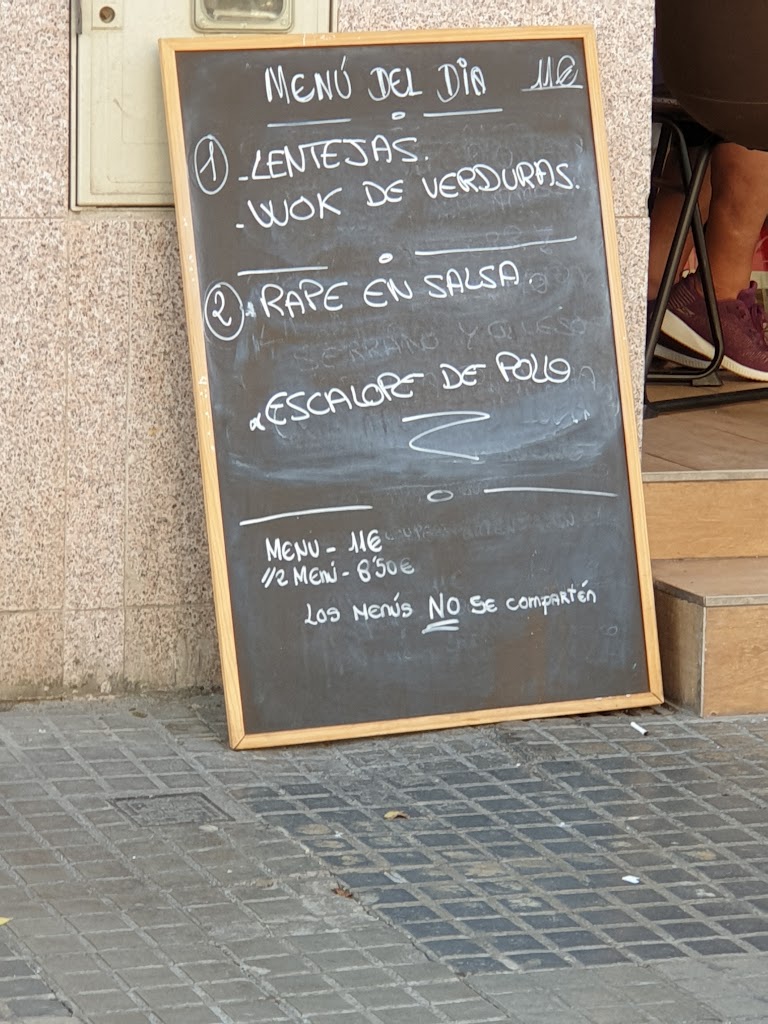 MENÚ DEL DIA 11€
1 - LENTEJAS.
- WOK DE VERDURAS.
2 - RAPE EN SALSA.
- ESCALOPE DE POLLO
MENU - 11€
1/2 MENÚ - 8'50€
LOS MENÚS NO SE COMPARTÉN